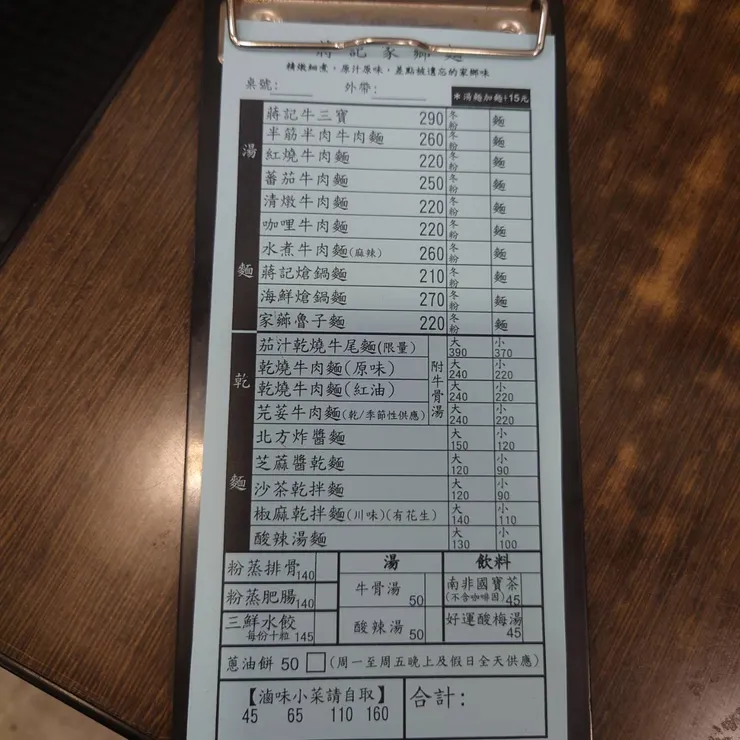 蔣記家鄉麵
精燉細煮，原汁原味，差點被遺忘的家鄉味
桌號： 外帶：
＊湯麵加麵+15元
湯麵
蔣記牛三寶 290 冬粉 麵
半筋半肉牛肉麵 260 冬粉 麵
紅燒牛肉麵 220 冬粉 麵
蕃茄牛肉麵 250 冬粉 麵
清燉牛肉麵 220 冬粉 麵
咖哩牛肉麵 220 冬粉 麵
水煮牛肉麵(麻辣) 260 冬粉 麵
蔣記熗鍋麵 210 冬粉 麵
海鮮熗鍋麵 270 冬粉 麵
家薌魯子麵 220 冬粉 麵
乾麵
茄汁乾燒牛尾麵(限量) 大390 小370
乾燒牛肉麵(原味) 大240 小220
乾燒牛肉麵(紅油) 大240 小220
芫荽牛肉麵(乾/季節性供應) 大240 小220
附牛骨湯
北方炸醬麵 大150 小120
芝蔴醬乾麵 大120 小90
沙茶乾拌麵 大120 小90
椒麻乾拌麵(川味)(有花生) 大140 小110
酸辣湯麵 大130 小100
粉蒸排骨140
粉蒸肥腸140
三鮮水餃
每份十粒 145
湯
牛骨湯 50
酸辣湯 50
飲料
南非國寶茶
(不含咖啡因)45
好運酸梅湯
45
蔥油餅 50 □ (周一至周五晚上及假日全天供應)
【滷味小菜請自取】
45 65 110 160
合計：